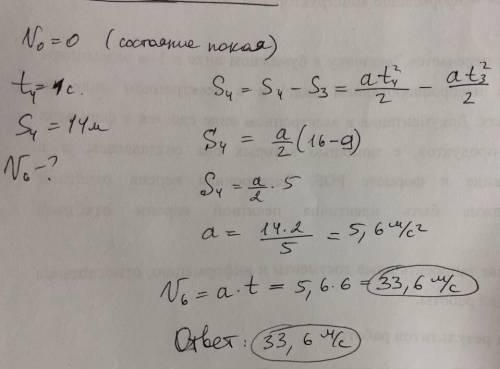 V₀ = 0 (состояние покоя)
t₄ = 4с.
S₄ = 14м
V₆ - ?
S₄ = S₄ - S₃ = at₄²/2 - at₃²/2
S₄ = a/2 (16-9)
S₄ = a/2 · 5
a = 14·2/5 = 5,6 м/с²
V₆ = a · t = 5,6·6 = 33,6 м/с
Ответ: 33,6 м/с